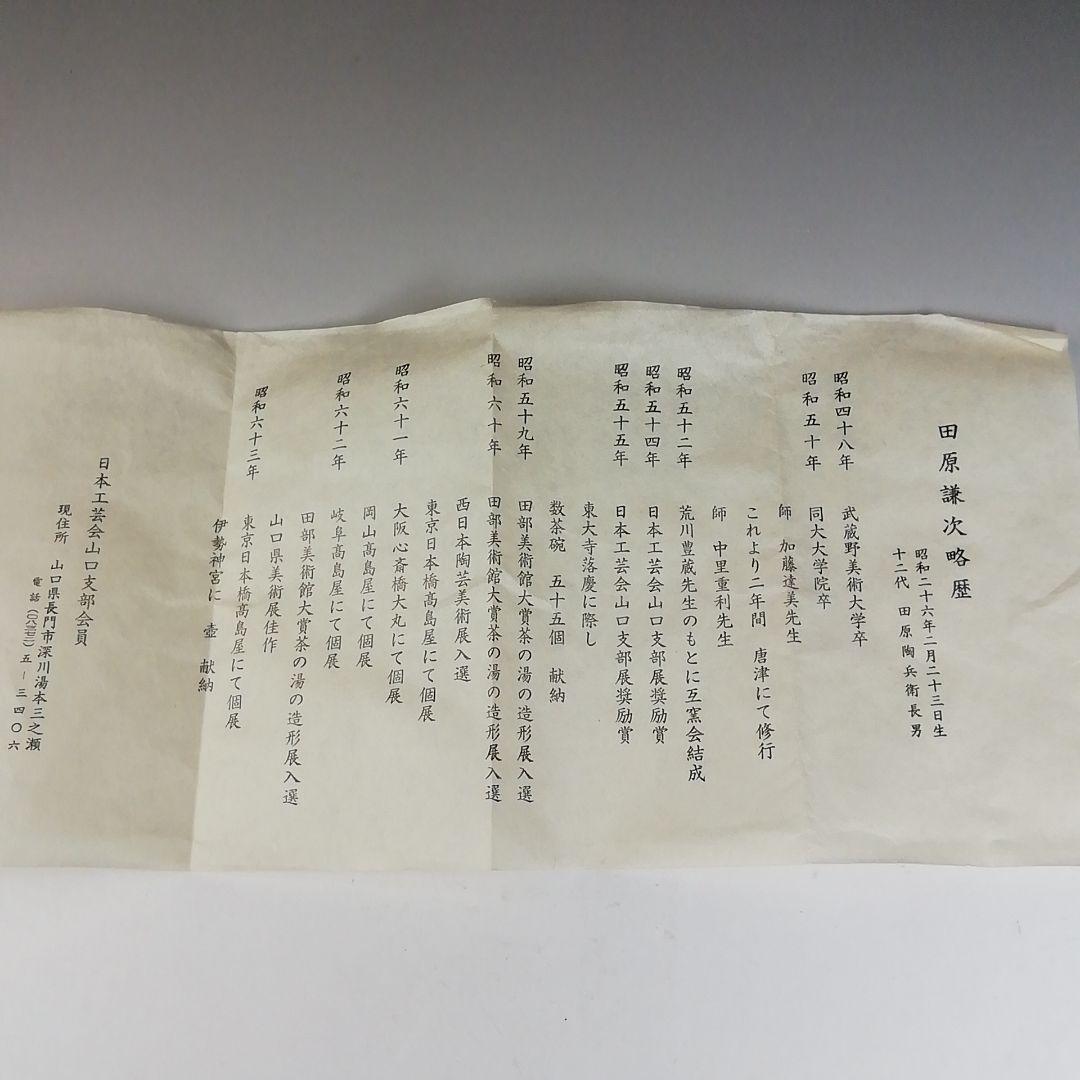 田原謙次略歴
昭和二十六年二月二十三日生
十二代 田原陶兵衛長男
昭和四十八年 武蔵野美術大学卒
昭和五十年 同大大学院卒
師 加藤達美先生
これより二年間 唐津にて修行
師 中里重利先生
昭和五十二年 荒川豊蔵先生のもとに互窯会結成
昭和五十四年 日本工芸会山口支部展奨励賞
昭和五十五年 日本工芸会山口支部展奨励賞
東大寺落慶に際し
数茶碗 五十五個 献納
昭和五十九年 田部美術館大賞茶の湯の造形展入選
昭和六十年 田部美術館大賞茶の湯の造形展入選
西日本陶芸美術展入選
東京日本橋髙島屋にて個展
昭和六十一年 大阪心斎橋大丸にて個展
岡山髙島屋にて個展
昭和六十二年 岐阜髙島屋にて個展
田部美術館大賞茶の湯の造形展入選
山口県美術展佳作
昭和六十三年 東京日本橋髙島屋にて個展
伊勢神宮に 壺 献納
日本工芸会山口支部会員
現住所 山口県長門市深川湯本三之瀬
電話(〇八三七二)五-三四〇六